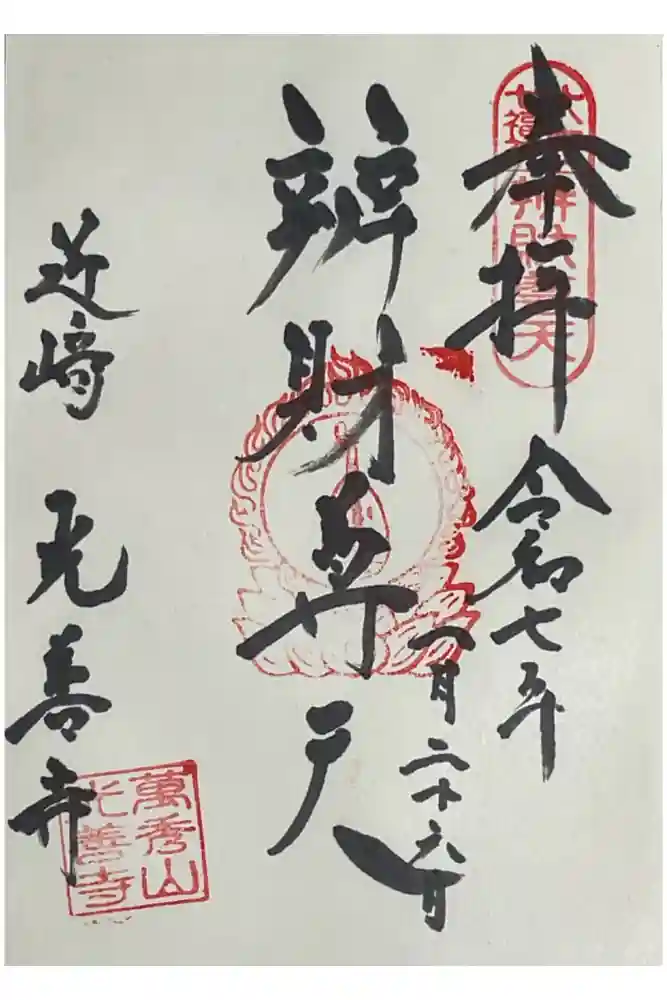 奉拝
令和七年
一月二十六日
辨財尊天
近崎 光善寺
辨財尊天
萬秀山
光善寺